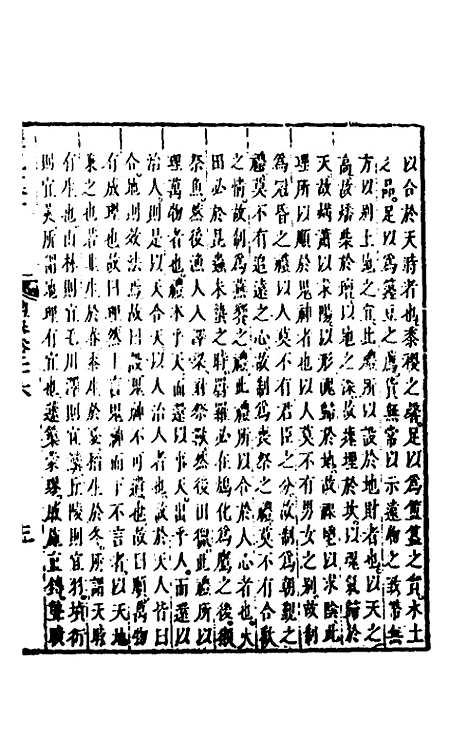 以合於天時者也黍稷之馨足以為簠簋之實水土
之品足以為籩豆之薦貨無常以示遠物之致幣無
方以別土地之宜此禮所以設於地財者也以天之
高故燔柴於壇以地之深故瘞埋於坎以魂氣歸於
天故焫蕭以求陽以形魄歸於地故祼鬯以求陰此
理所以順於鬼神者也以人莫不有男女之別故制
為冠昏之禮以人莫不有君臣之分故制為朝覲之
禮莫不有追遠之心故制為喪祭之禮莫不有合歡
之情故制為燕饗之禮此禮所以合於人心者也大
田必於昆蟲未蟄之時羅必在鳩化為鷹之後獺
祭魚然後漁人入豺祭獸然後田獵此禮所以
理萬物者也禮本乎天而還以事天出乎人而還以
治人則是以天合天以人治人者也故於天人皆曰
合地則效法焉故曰設鬼神不可遺也故曰順萬物
有成理也故曰理然上言鬼神而下不言者以天地
兼之也若韭生於春黍生於夏稻生於冬所謂天時
有生也山林則宜毛川澤則宜丘陵則宜羽墳衍
則宜莢所謂地理有宜也蘧篨蒙璆戚施直鎛聾聵